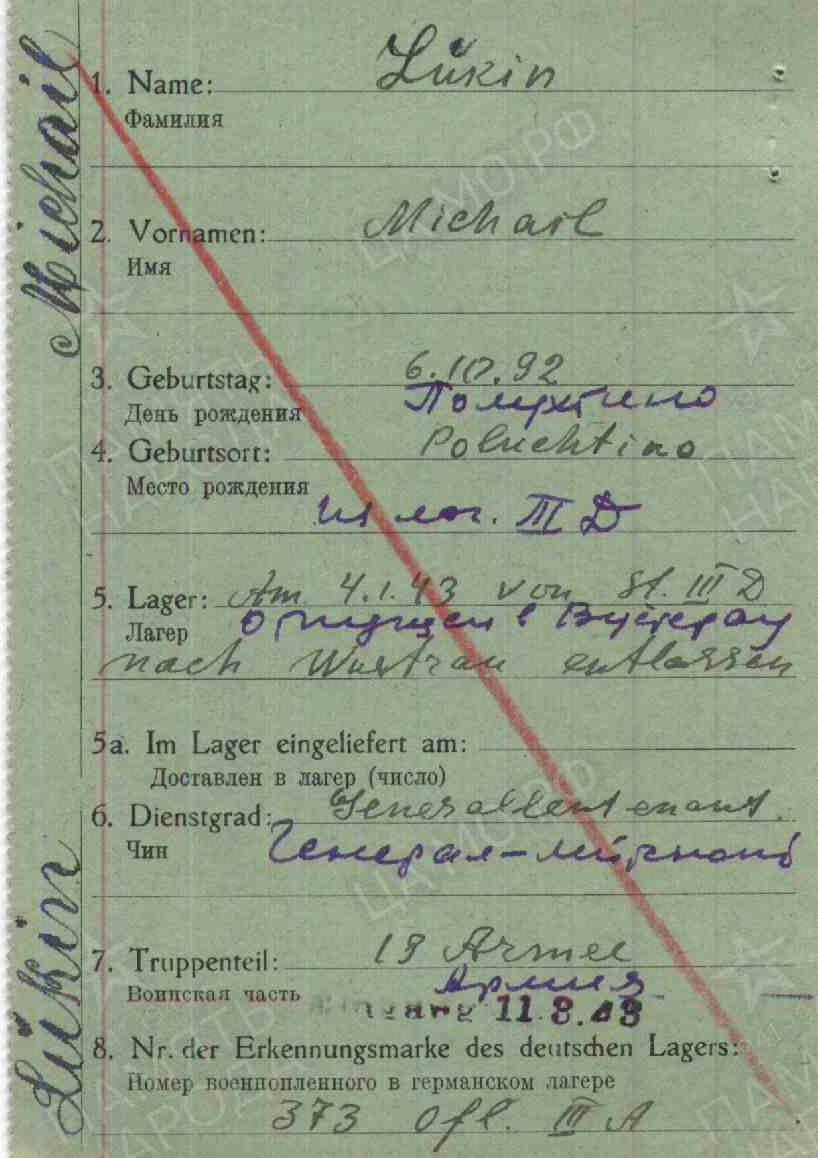 Michail
Lükin
1. Name: Lükin
Фамилия
2. Vornamen: Michail
Имя
3. Geburtstag: 6.10.92
День рождения Полухтино
4. Geburtsort: Poluchtino
Место рождения
из лаг. III Д
5. Lager: Am 4.1.43 von St. III D
Лагер отпущен в Вустрау
nach Wustrau entlassen
5a. Im Lager eingeliefert am:
Доставлен в лагер (число)
6. Dienstgrad: Generalleutenant.
Чин Генерал-лейтнант
7. Truppenteil: 19 Armee
Воинская часть Армия
11.8.43
8. Nr. der Erkennungsmarke des deutschen Lagers:
Номер военнопленного в германском лагере
373 Ofl. III A
ЦАМО.РФ
ПАМЯТЬ
НАРОДА